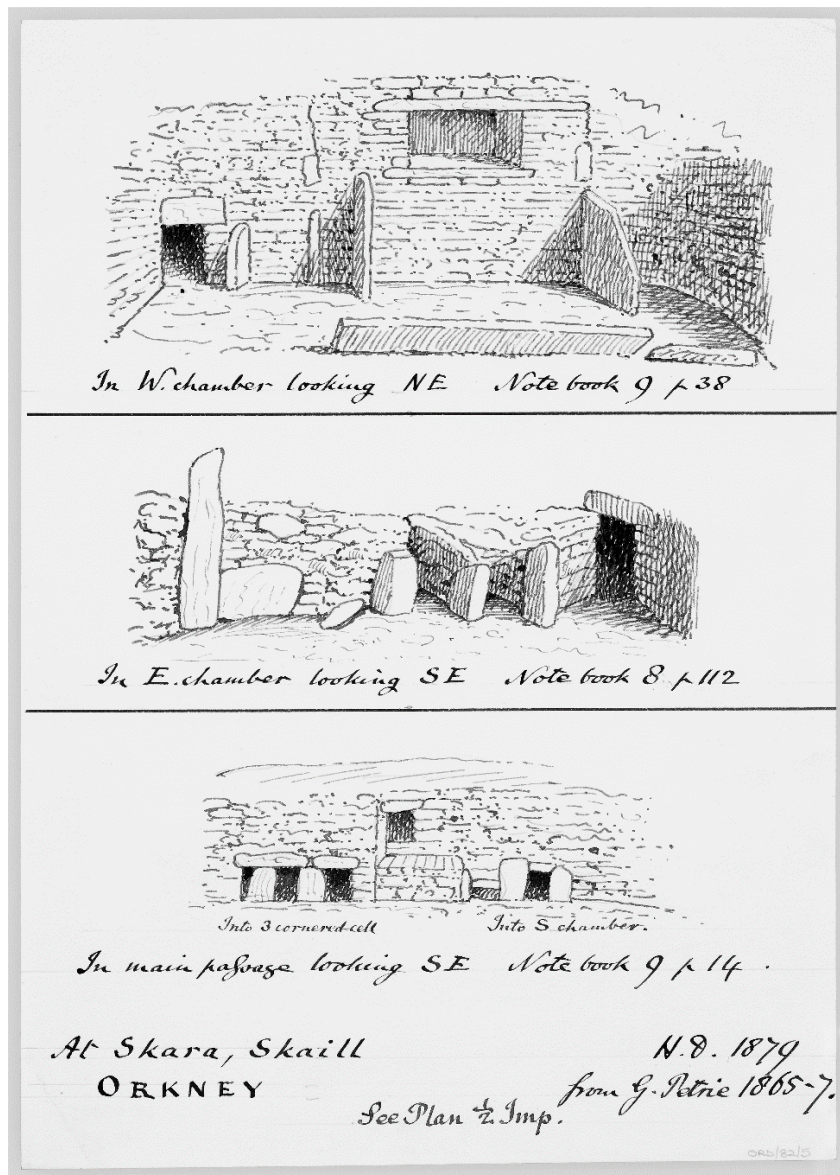 In W. chamber looking NE Note book 9 p 38
In E. chamber looking SE Note book 8 p 112
Into 3 cornered cell Into S chamber.
In main paſsage looking SE Note book 9 p 14.
At Skara, Skaill H.D. 1879
ORKNEY from G. Petrie 1865-7.
See Plan ½ Imp.
ORD/82/5